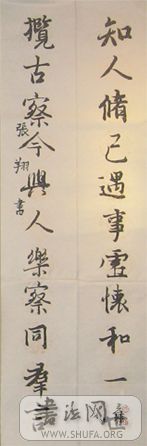 知人脩己遇事虛懷和一世
攬古察今與人樂察同羣
張翔書
書法网
WWW.SHUFA.ORG